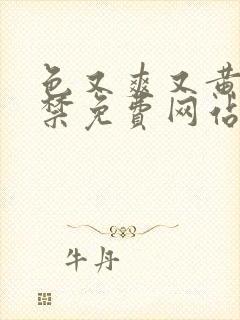 色又爽又黄
禁免費网站
牛丹